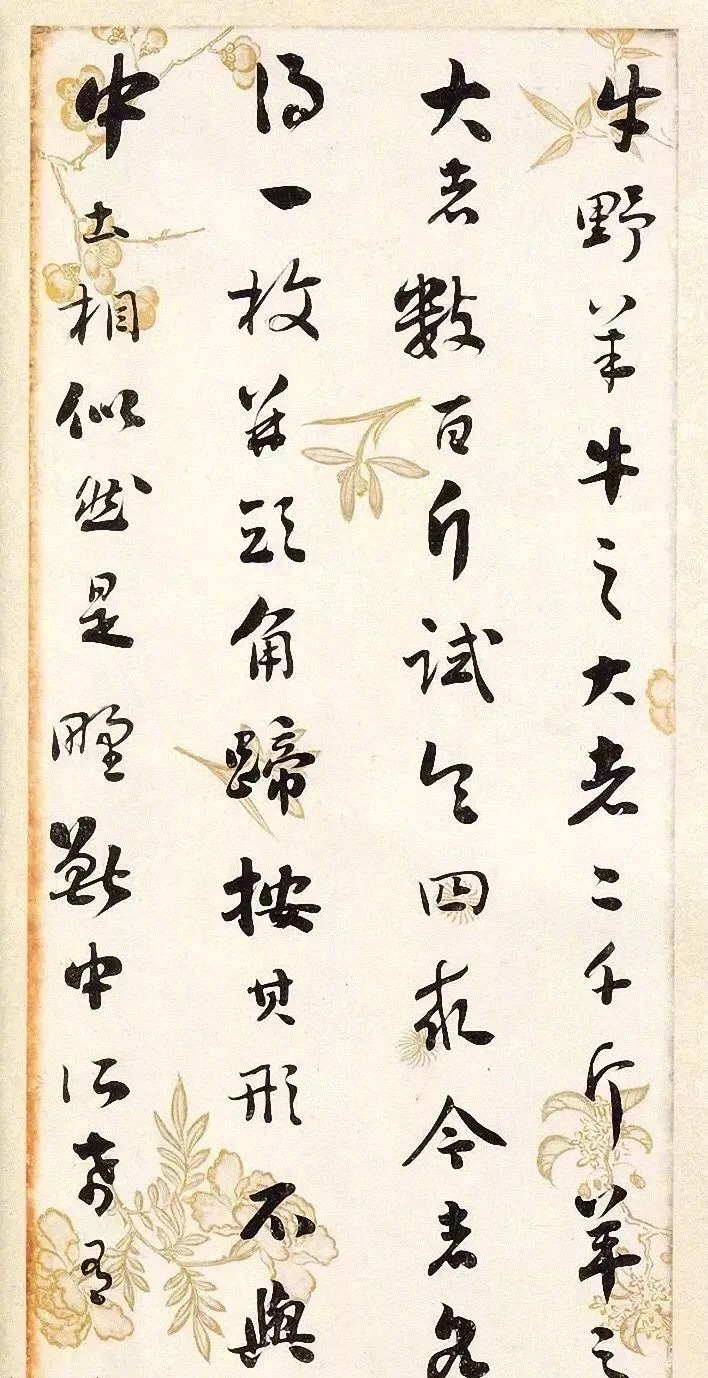 牛野羊牛之大者二千斤羊之
大者數百斤試令四求今者各
得一枚并頭角蹄按其形不與
中土相似然是野獸中所希有